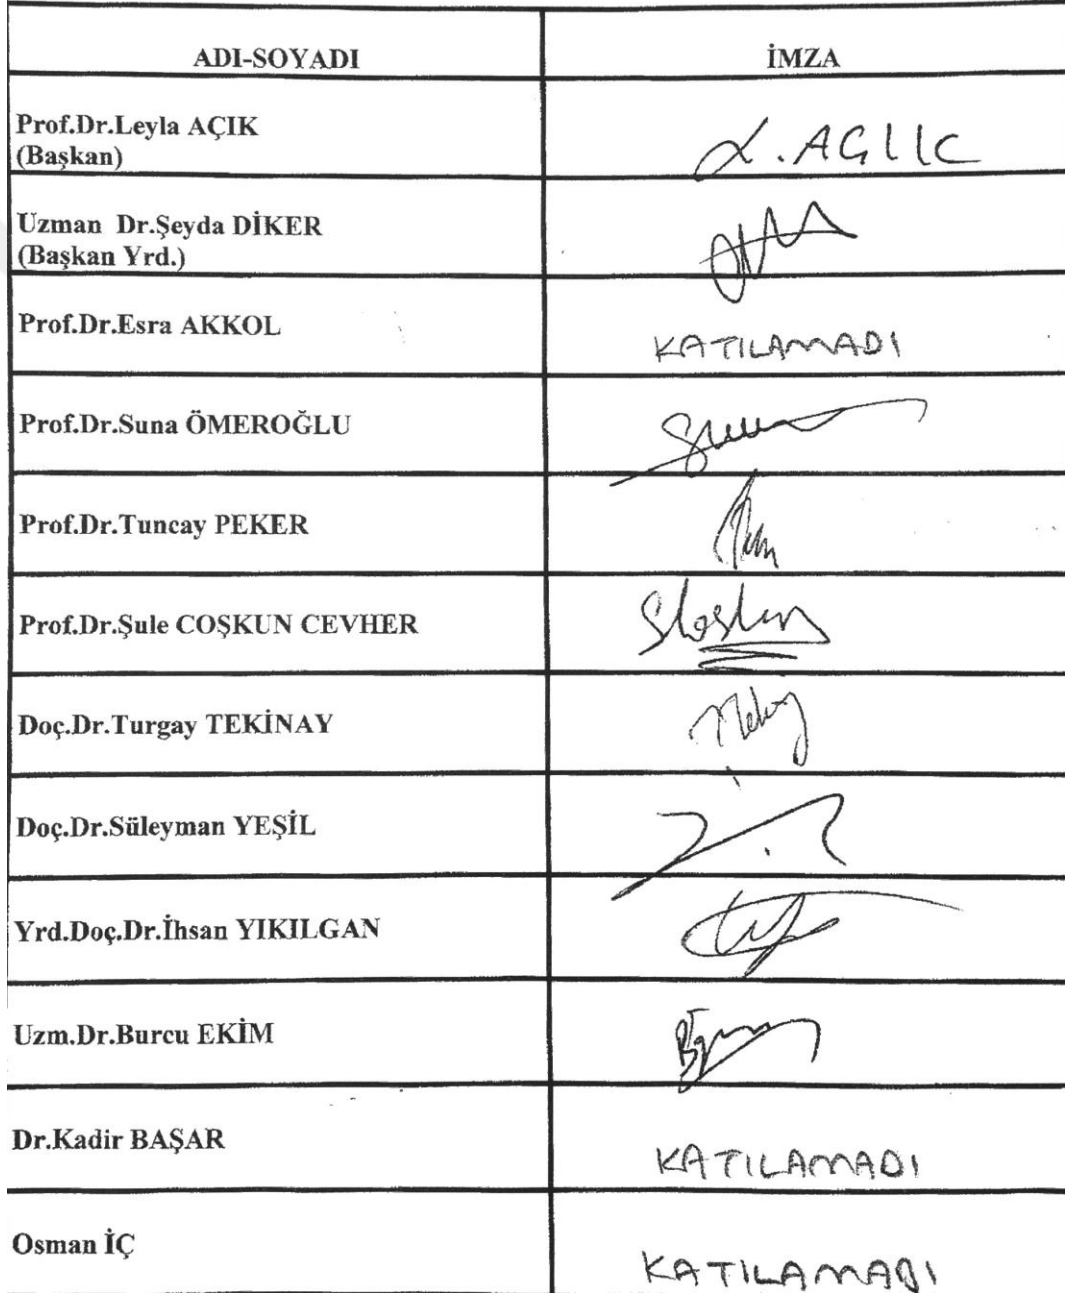 ADI-SOYADI İMZA
Prof.Dr.Leyla AÇIK
(Başkan)
L. AÇIK
Uzman Dr.Şeyda DİKER
(Başkan Yrd.)
Prof.Dr.Esra AKKOL
KATILAMADI
Prof.Dr.Suna ÖMEROĞLU
Prof.Dr.Tuncay PEKER
Prof.Dr.Şule COŞKUN CEVHER
Doç.Dr.Turgay TEKİNAY
Doç.Dr.Süleyman YEŞİL
Yrd.Doç.Dr.İhsan YIKILGAN
Uzm.Dr.Burcu EKİM
Dr.Kadir BAŞAR
KATILAMADI
Osman İÇ
KATILAMADI